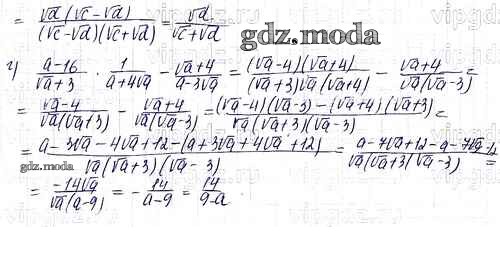 = √d(√c-√d) / (√c-√d)(√c+√d) = √d / √c+√d
gdz.moda
г) a-16 / √a+3 · 1 / a+4√a - √a+4 / a-3√a = (√a-4)(√a+4) / (√a+3)√a(√a+4) - √a+4 / √a(√a-3) =
= √a-4 / √a(√a+3) - √a+4 / √a(√a-3) = (√a-4)(√a-3)-(√a+4)(√a+3) / √a(√a+3)(√a-3) =
= a-3√a-4√a+12-(a+3√a+4√a+12) / √a(√a+3)(√a-3) = a-7√a+12-a-7√a-12 / √a(√a+3)(√a-3) =
gdz.moda
= -14√a / √a(a-9) = - 14 / a-9 = 14 / 9-a